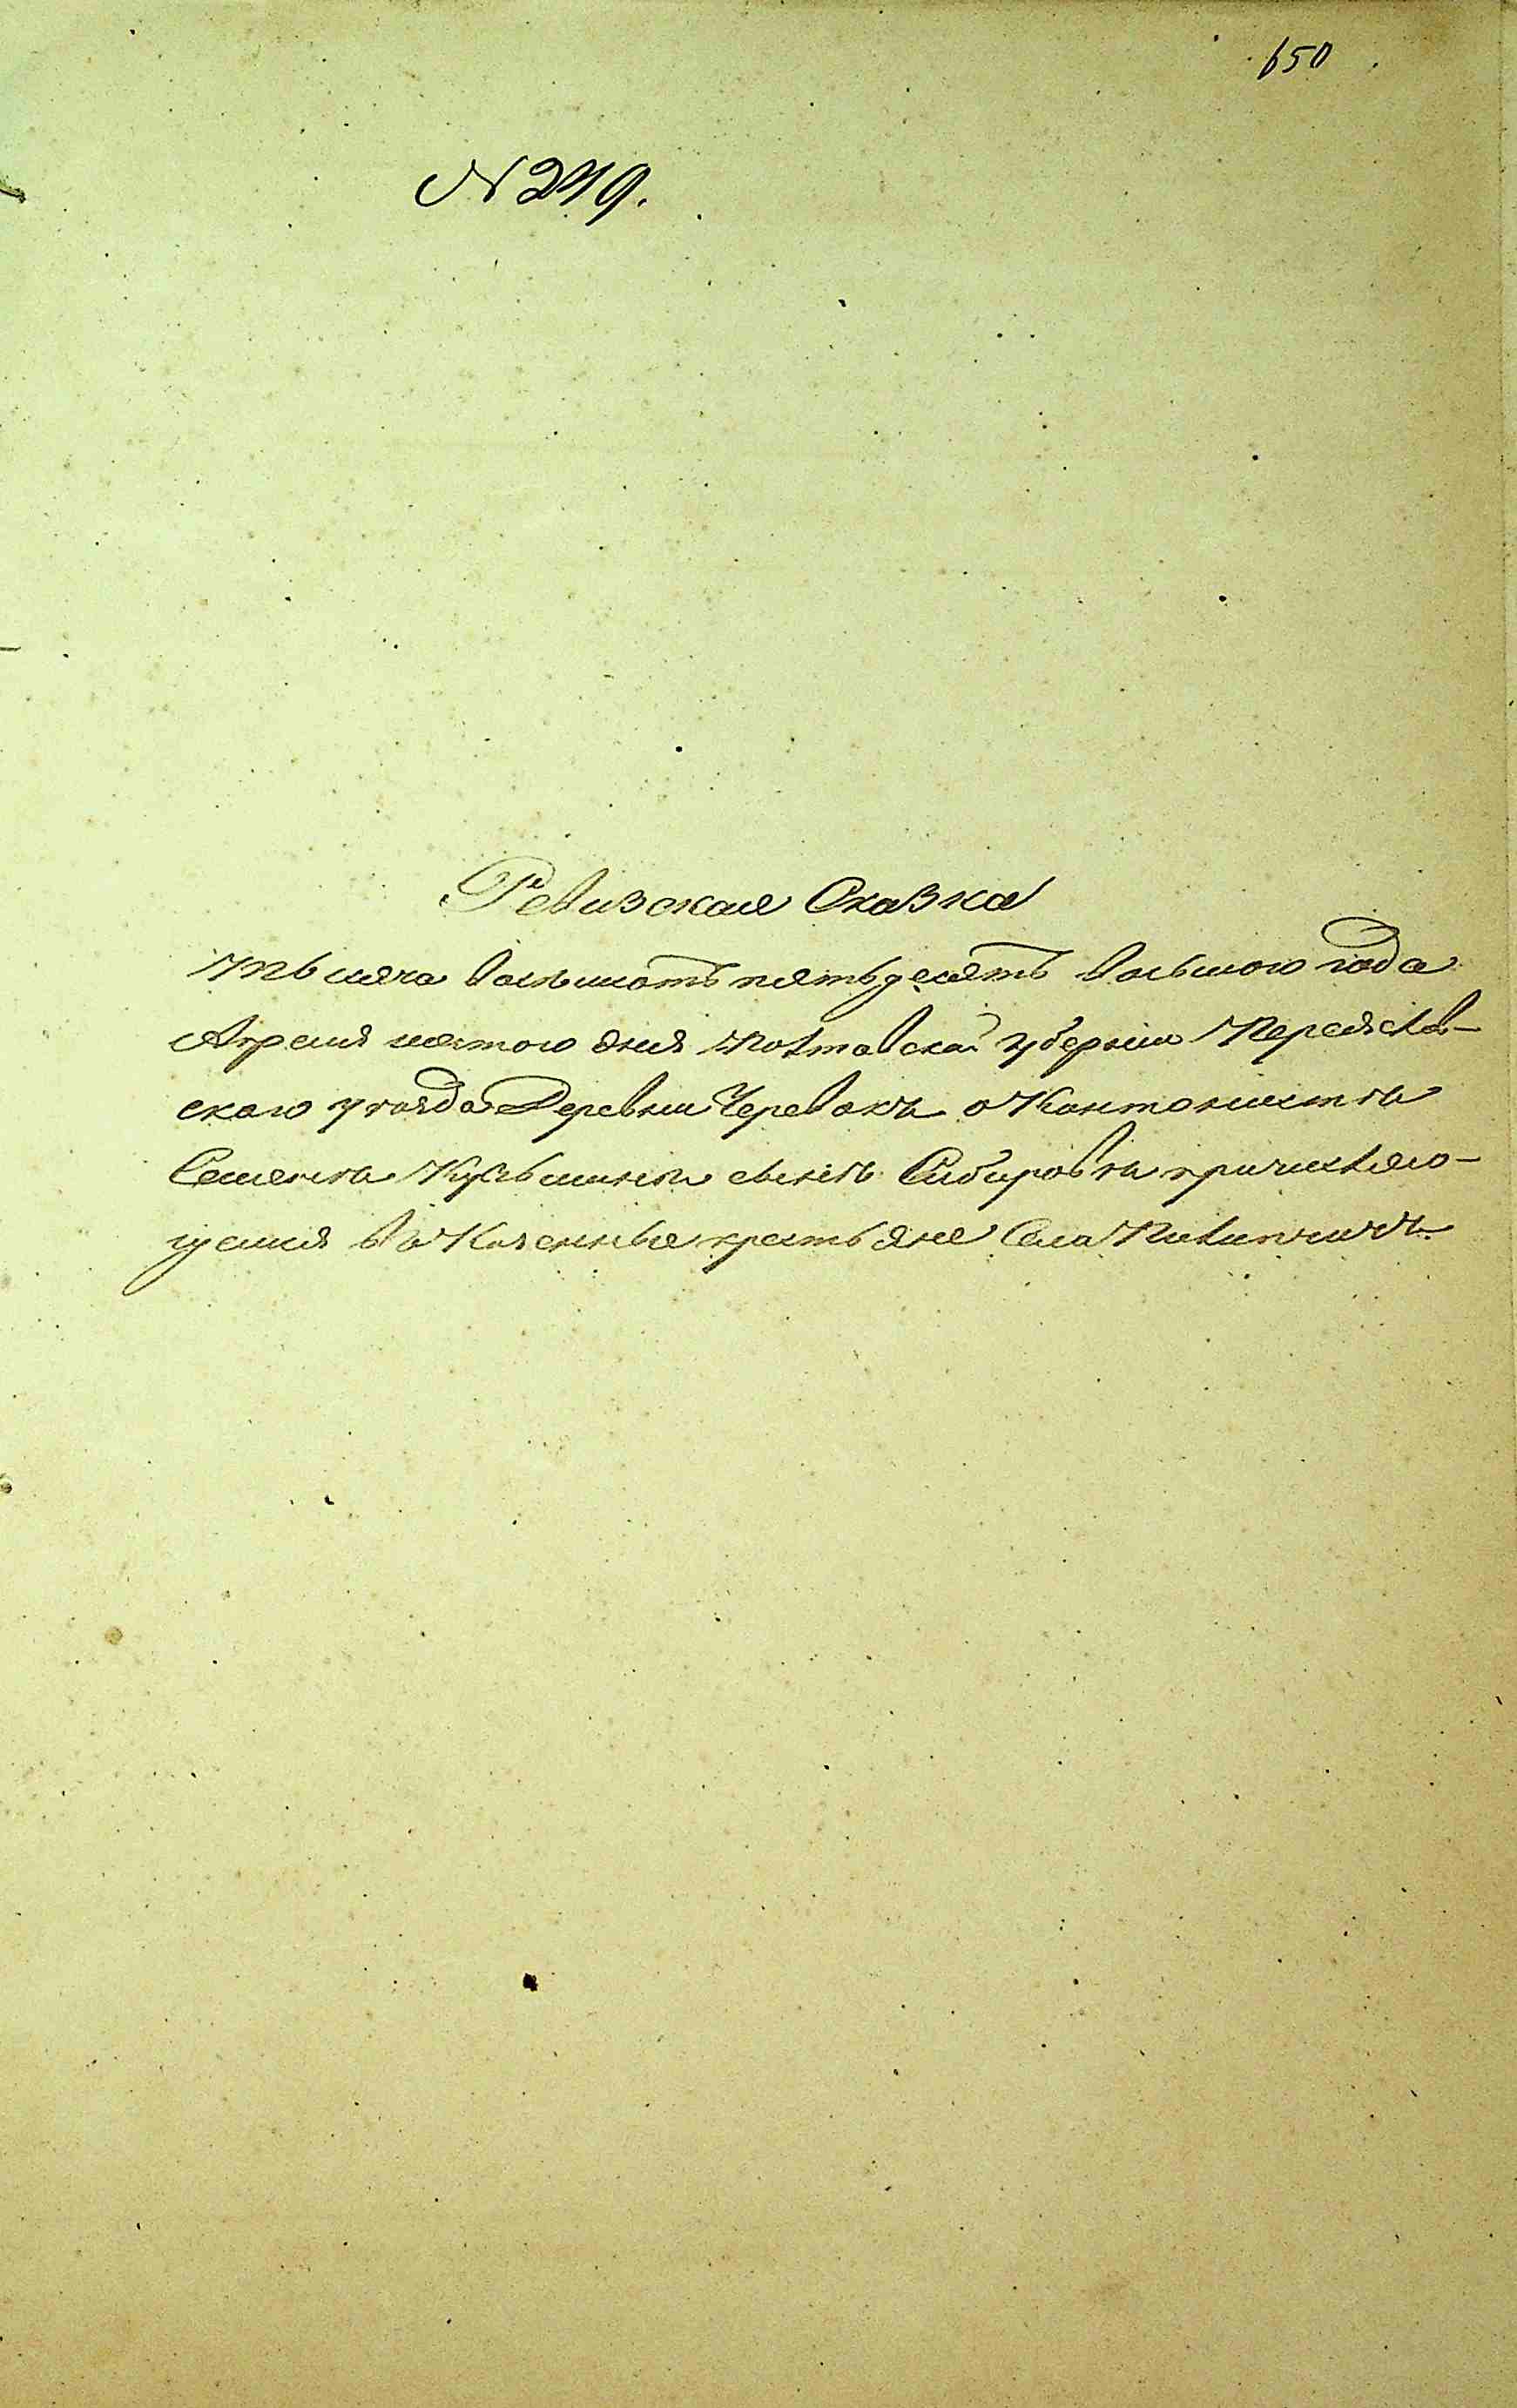 650
№ 249.
Ревизская Сказка
тысяча восемьсотъ пятьдесятъ восьмого года
Апреля шестого дня Полтавской губернии Переяслав-
скаго уезда Деревни Черевакъ о Кантонисте
Семене Кузьмине сыне Сибирове причисляю-
щемся во Казенные крестьяне Села